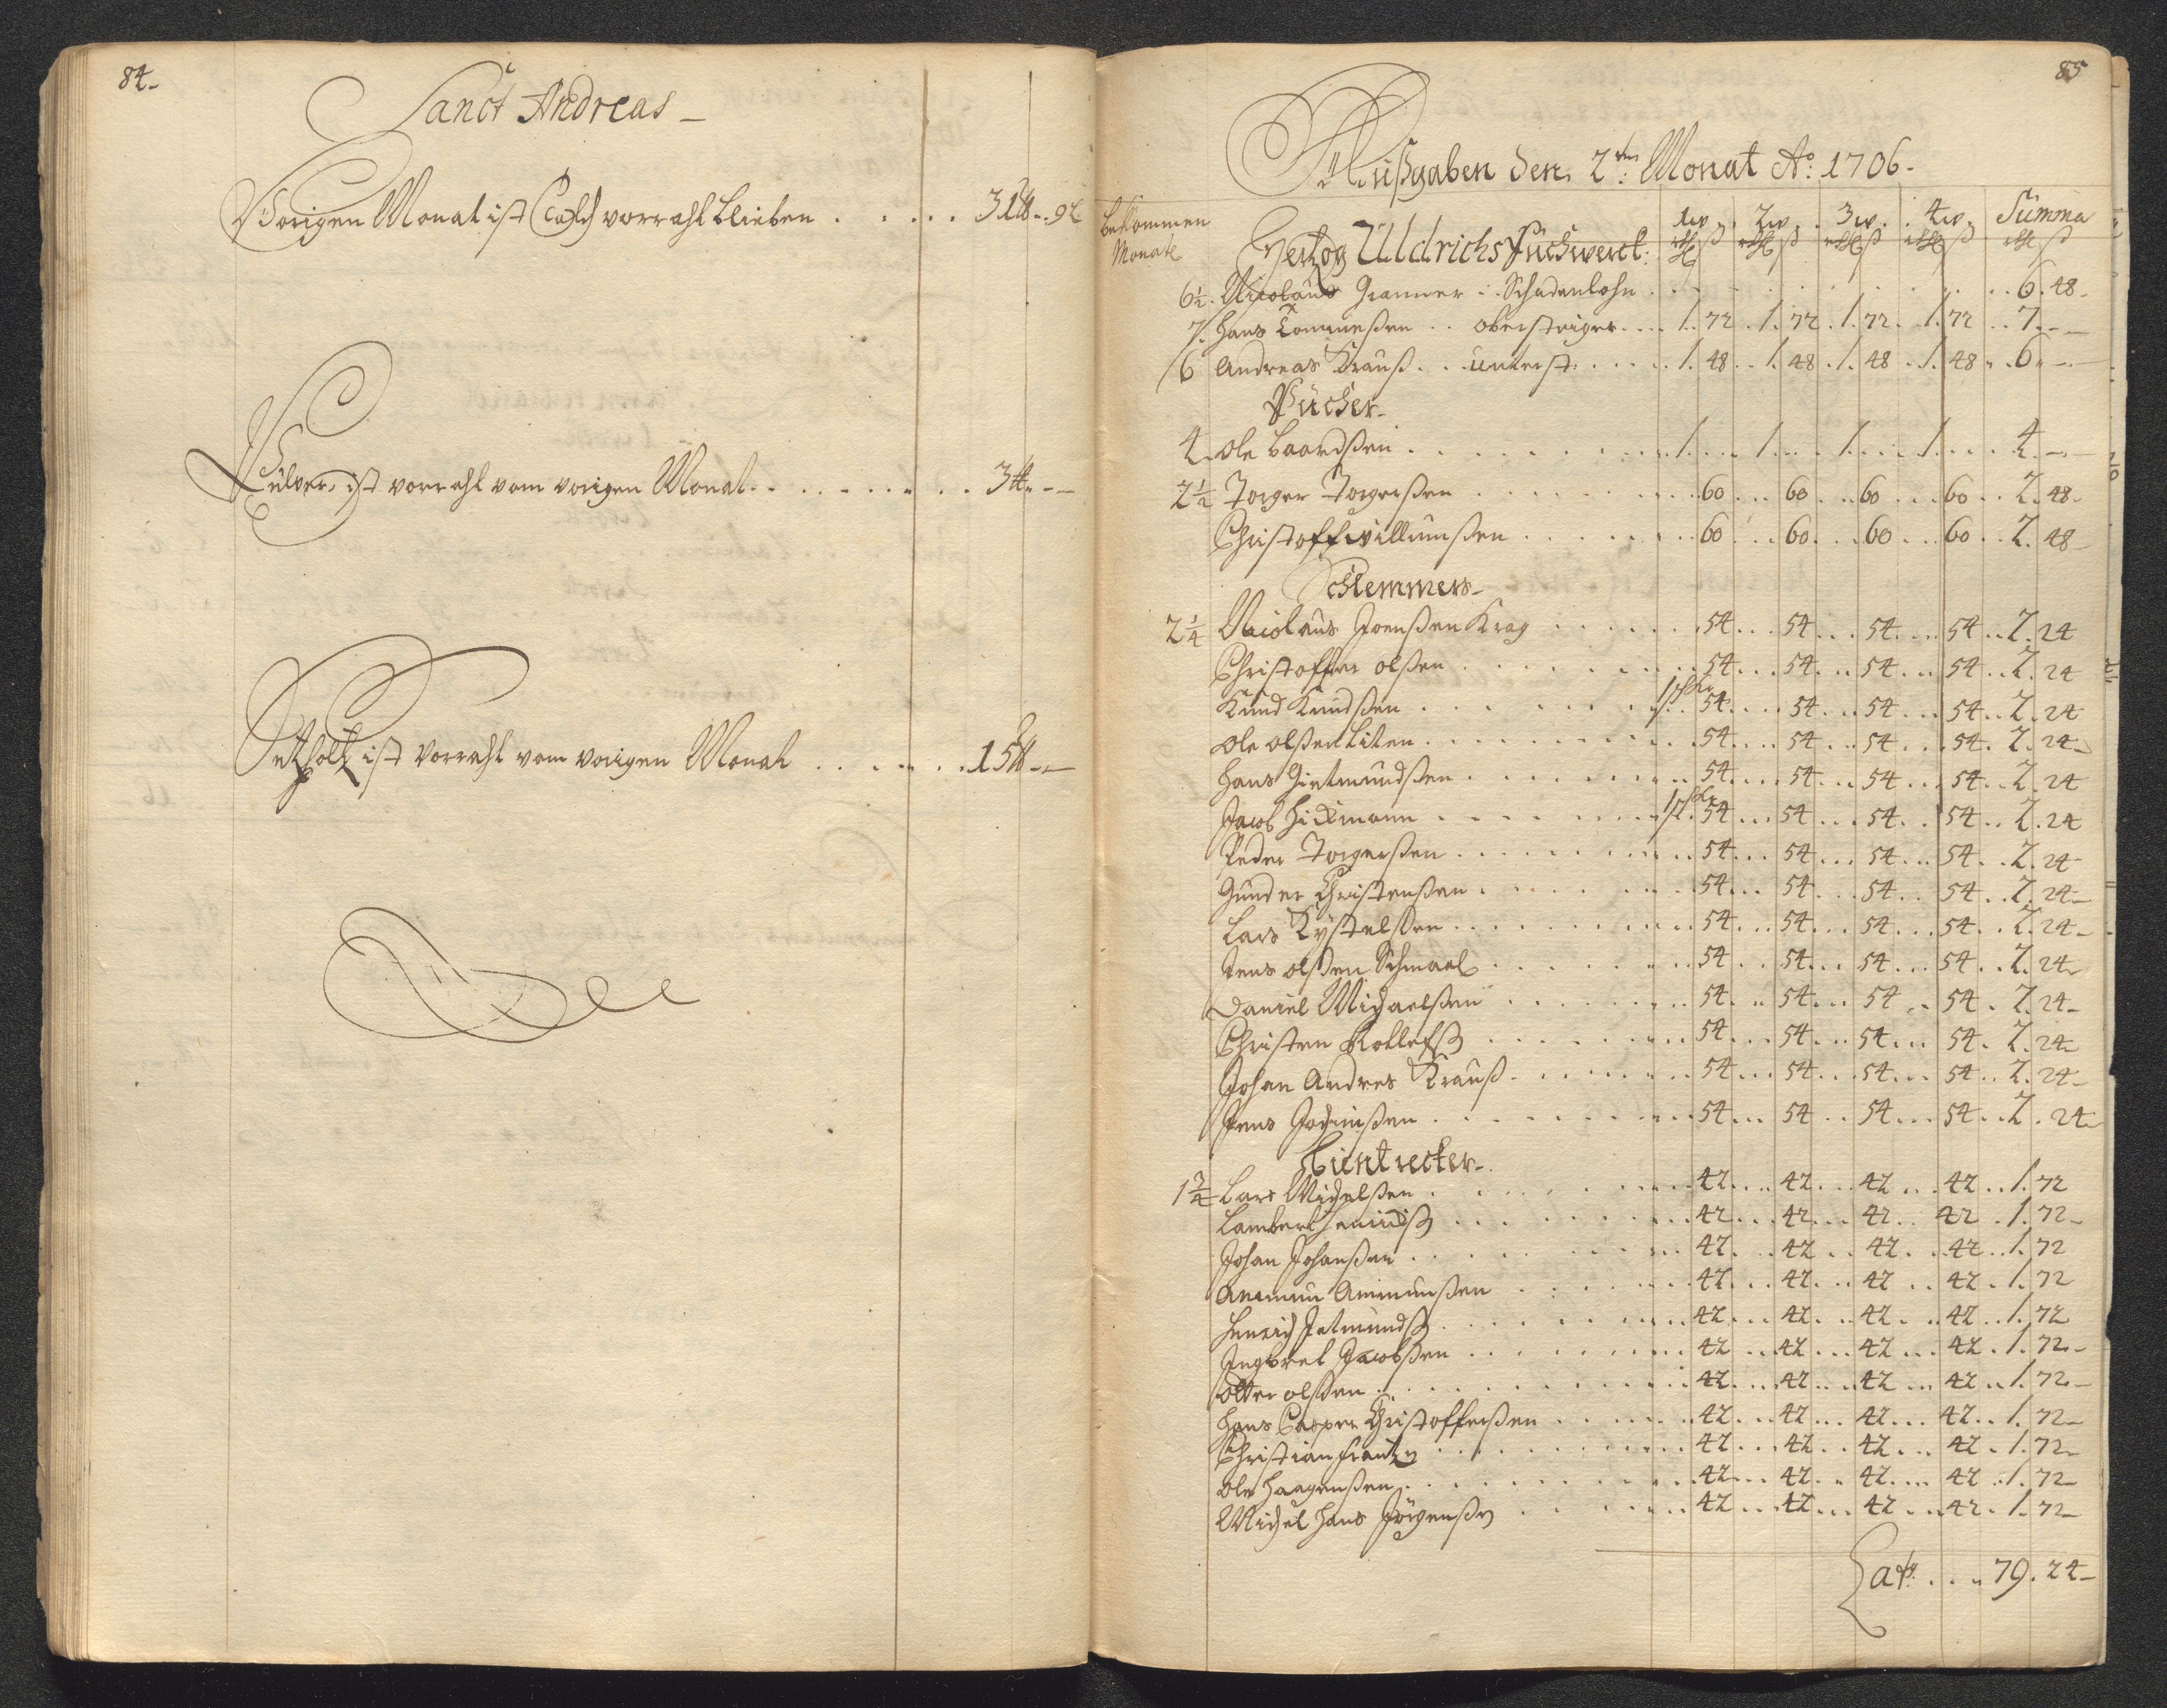 84.
Sanct Andreas
Vorigen Monat ist Talch vorraht blieben . . . . . 31 ℔ . .
Pulver, ist vorraht vom vorigen Monat . . . . . 3 ℔ . -
ist vorraht vom vorigen Monat . . . . . 15 ℔ . -
85
Außgaben den 2ten Monat Ao: 1706.
Bekommen Monatl
Hertzog Uldrichs Puchwerck: 1w. 2w. 3w. 4w. Summa
6½. Nicolaus Schadenlohn . . . 6. 48.
7. Hans . . obersteiger . . . 1. 72 . 1. 72 . 1. 72 . 1. 72 . . 7. -
6 Andreas Krauß . . unterst: . . . 1. 48 . . 1. 48 . 1. 48 . 1. 48 . . 6. -
Pucher
4. Ole Baardßen . . . 1. . . 1. . . 1. . . 1. . . 4. -
2½ Torger Torgerßen . . . 60 . . 60 . . 60 . . 60 . . 2. 48.
Christoff Willumßen . . . 60 . . 60 . . 60 . . 60 . . 2. 48
Schlemmers
2¼ Nicolaus Joenßen Krag . . . 54 . . 54 . . 54 . . 54 . . 2. 24
Christoffer olßen . . . 54 . . 54 . . 54 . . 54 . . 2. 24
Knud Knudßen . . . 54 . . 54 . . 54 . . 54 . . 2. 24
Ole olßen Liten . . . 54 . . 54 . . 54 . . 54 . . 2. 24
Hans Gietmundßen . . . 54 . . 54 . . 54 . . 54 . . 2. 24
Jacob Hickmann . . . 54 . . 54 . . 54 . . 54 . . 2. 24
Peder Torgerßen . . . 54 . . 54 . . 54 . . 54 . . 2. 24
Gunder Christenßen . . . 54 . . 54 . . 54 . . 54 . . 2. 24
Lars Kystelßen . . . 54 . . 54 . . 54 . . 54 . . 2. 24
Jens olßen Schmael . . . 54 . . 54 . . 54 . . 54 . . 2. 24
Daniel Michaelßen . . . 54 . . 54 . . 54 . . 54 . . 2. 24
Christen Rollefß . . . 54 . . 54 . . 54 . . 54 . . 2. 24
Johan Andres Krauß . . . 54 . . 54 . . 54 . . 54 . . 2. 24
Jens Jochimßen . . . 54 . . 54 . . 54 . . 54 . . 2. 24
1¾ Lars Michelßen . . . 42 . . 42 . . 42 . . 42 . . 1. 72
Lambert . . . 42 . . 42 . . 42 . . 42 . . 1. 72
Johan Johanßen . . . 42 . . 42 . . 42 . . 42 . . 1. 72
Ammun Ammunßen . . . 42 . . 42 . . 42 . . 42 . . 1. 72
Henrich Jetmundß . . . 42 . . 42 . . 42 . . 42 . . 1. 72
Ingbret Jacobßen . . . 42 . . 42 . . 42 . . 42 . . 1. 72
Otter olßen . . . 42 . . 42 . . 42 . . 42 . . 1. 72
Hans Casper Christofferßen . . . 42 . . 42 . . 42 . . 42 . . 1. 72
Christian Frantz . . . 42 . . 42 . . 42 . . 42 . . 1. 72
Ole Haagenßen . . . 42 . . 42 . . 42 . . 42 . . 1. 72
Michel Hans Jörgenß . . . 42 . . 42 . . 42 . . 42 . . 1. 72
Latg: . . . 79. 24